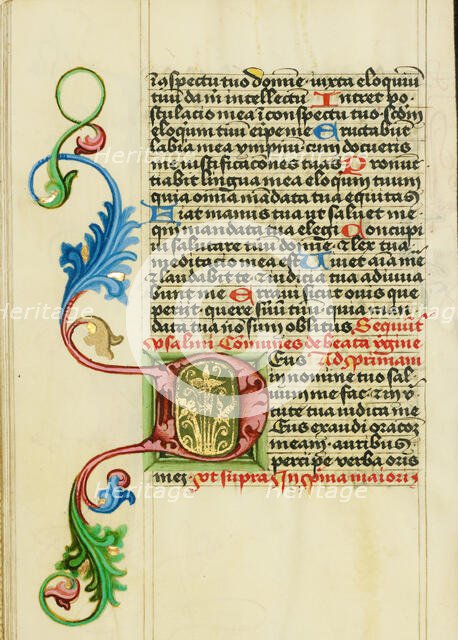 in aspectu tuo domine · iuxta eloquiu
tuu da mi intellectu Intret po-
stulacio mea i conspectu tuo · scdm
eloquium tuu eripe me Eructabut
labia mea ympnu · cum docueris
me iustificacones tuas Pronun-
ciabit lingua mea eloquium tuum
quia omnia mandata tua equitas
Fiat manus tua ut saluet me ·
qm mandata tua elegi Concupi-
ui salutare tuu domine · et lex tua
meditacio mea est Uiuet aia mea
et laudabit te · et iudicia tua adiuua
bunt me Erraui sicut ouis que
periit · quere seruu tuu · quia man
data tua no sum oblitus · Sequut
psalmi Comunes de beata vgine
Deus Ad Primam
in nomine tuo sal-
uum me fac · et in vir
tute tua iudica me
Deus exaudi oracoz
meam · auribus
percipe verba oris
mei · vt supra In pma maioris